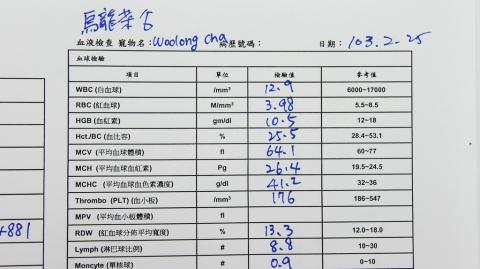 烏龍茶否
血液檢查 寵物名：Woolong Cha 病歷號碼： 日期：103.2.25
血球檢驗
項目 單位 檢驗值 參考值
WBC (白血球) /mm³ 12.9 6000~17000
RBC (紅血球) M/mm³ 3.98 5.5~8.5
HGB (血紅素) gm/dl 10.5 12~18
Hct./BC (血比容) % 25.5 28.4~53.1
MCV (平均血球體積) fl 64.1 60~77
MCH (平均血球血紅素) Pg 26.4 19.5~24.5
MCHC (平均血球血色素濃度) g/dl 41.2 32~36
Thrombo (PLT) (血小板) /mm³ 176 186~547
MPV (平均血小板體積) fl
RDW (紅血球分佈平均寬度) % 13.3 12.0~18.0
+881
Lymph (淋巴球比例) # 8.8 10~30
Moncyte (單核球) # 0.9 0~10